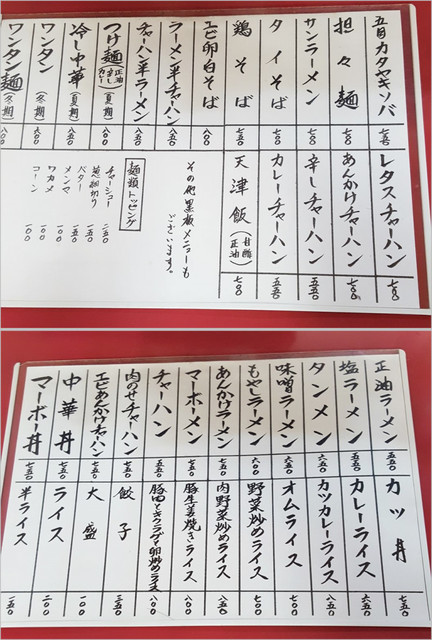 五目カタヤキソバ 七五〇
担々麺 七〇〇
サンラーメン 七〇〇
タイそば 七〇〇
鶏そば 七五〇
エビ卵白そば 八〇〇
ラーメン半チャーハン 八五〇
チャーハン半ラーメン 八五〇
つけ麺(正油 辛し カレー)(夏期) 八〇〇
冷し中華(夏期) 八五〇
ワンタン(冬期)
ワンタン麺(冬期) 八〇〇
レタスチャーハン 七〇〇
あんかけチャーハン 七〇〇
辛しチャーハン 五五〇
カレーチャーハン 五五〇
天津飯(甘酢 正油) 七〇〇
その他黒板メニューも
ございます。
麺類トッピング
チャーシュー 二五〇
葱細切り 一五〇
バター
メンマ 一五〇
ワカメ 一〇〇
コーン 一〇〇
正油ラーメン 五五〇
塩ラーメン 五五〇
タンメン 六五〇
味噌ラーメン 六五〇
もやしラーメン 六〇〇
あんかけラーメン 七五〇
マーボーメン 七五〇
チャーハン 五五〇
肉のせチャーハン 七五〇
エビあんかけチャーハン 七五〇
中華丼 七五〇
マーボー丼 七五〇
カツ丼 七五〇
カレーライス 六五〇
カツカレーライス 八五〇
オムライス 七〇〇
野菜炒めライス 七〇〇
肉野菜炒めライス 八〇〇
豚生姜焼きライス 八〇〇
豚肉ときクラゲと卵炒めライス 八〇〇
餃子 三五〇
大盛 一〇〇
ライス 二〇〇
半ライス 一五〇